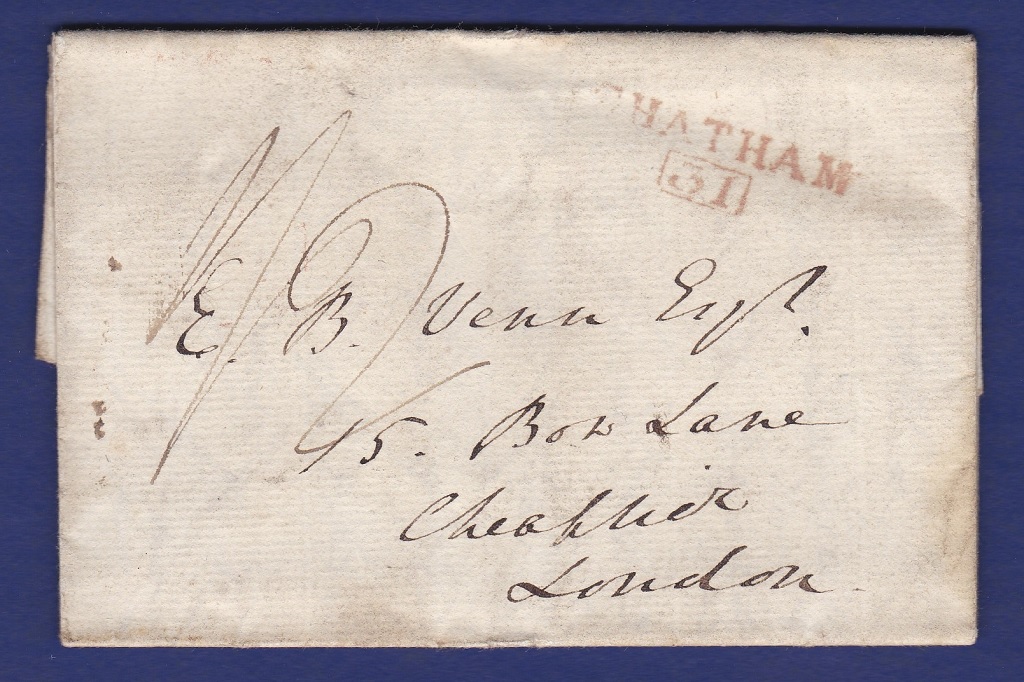 CHATHAM
31
E. B. Venn Esqr.
15. Bow Lane
Cheapside
London